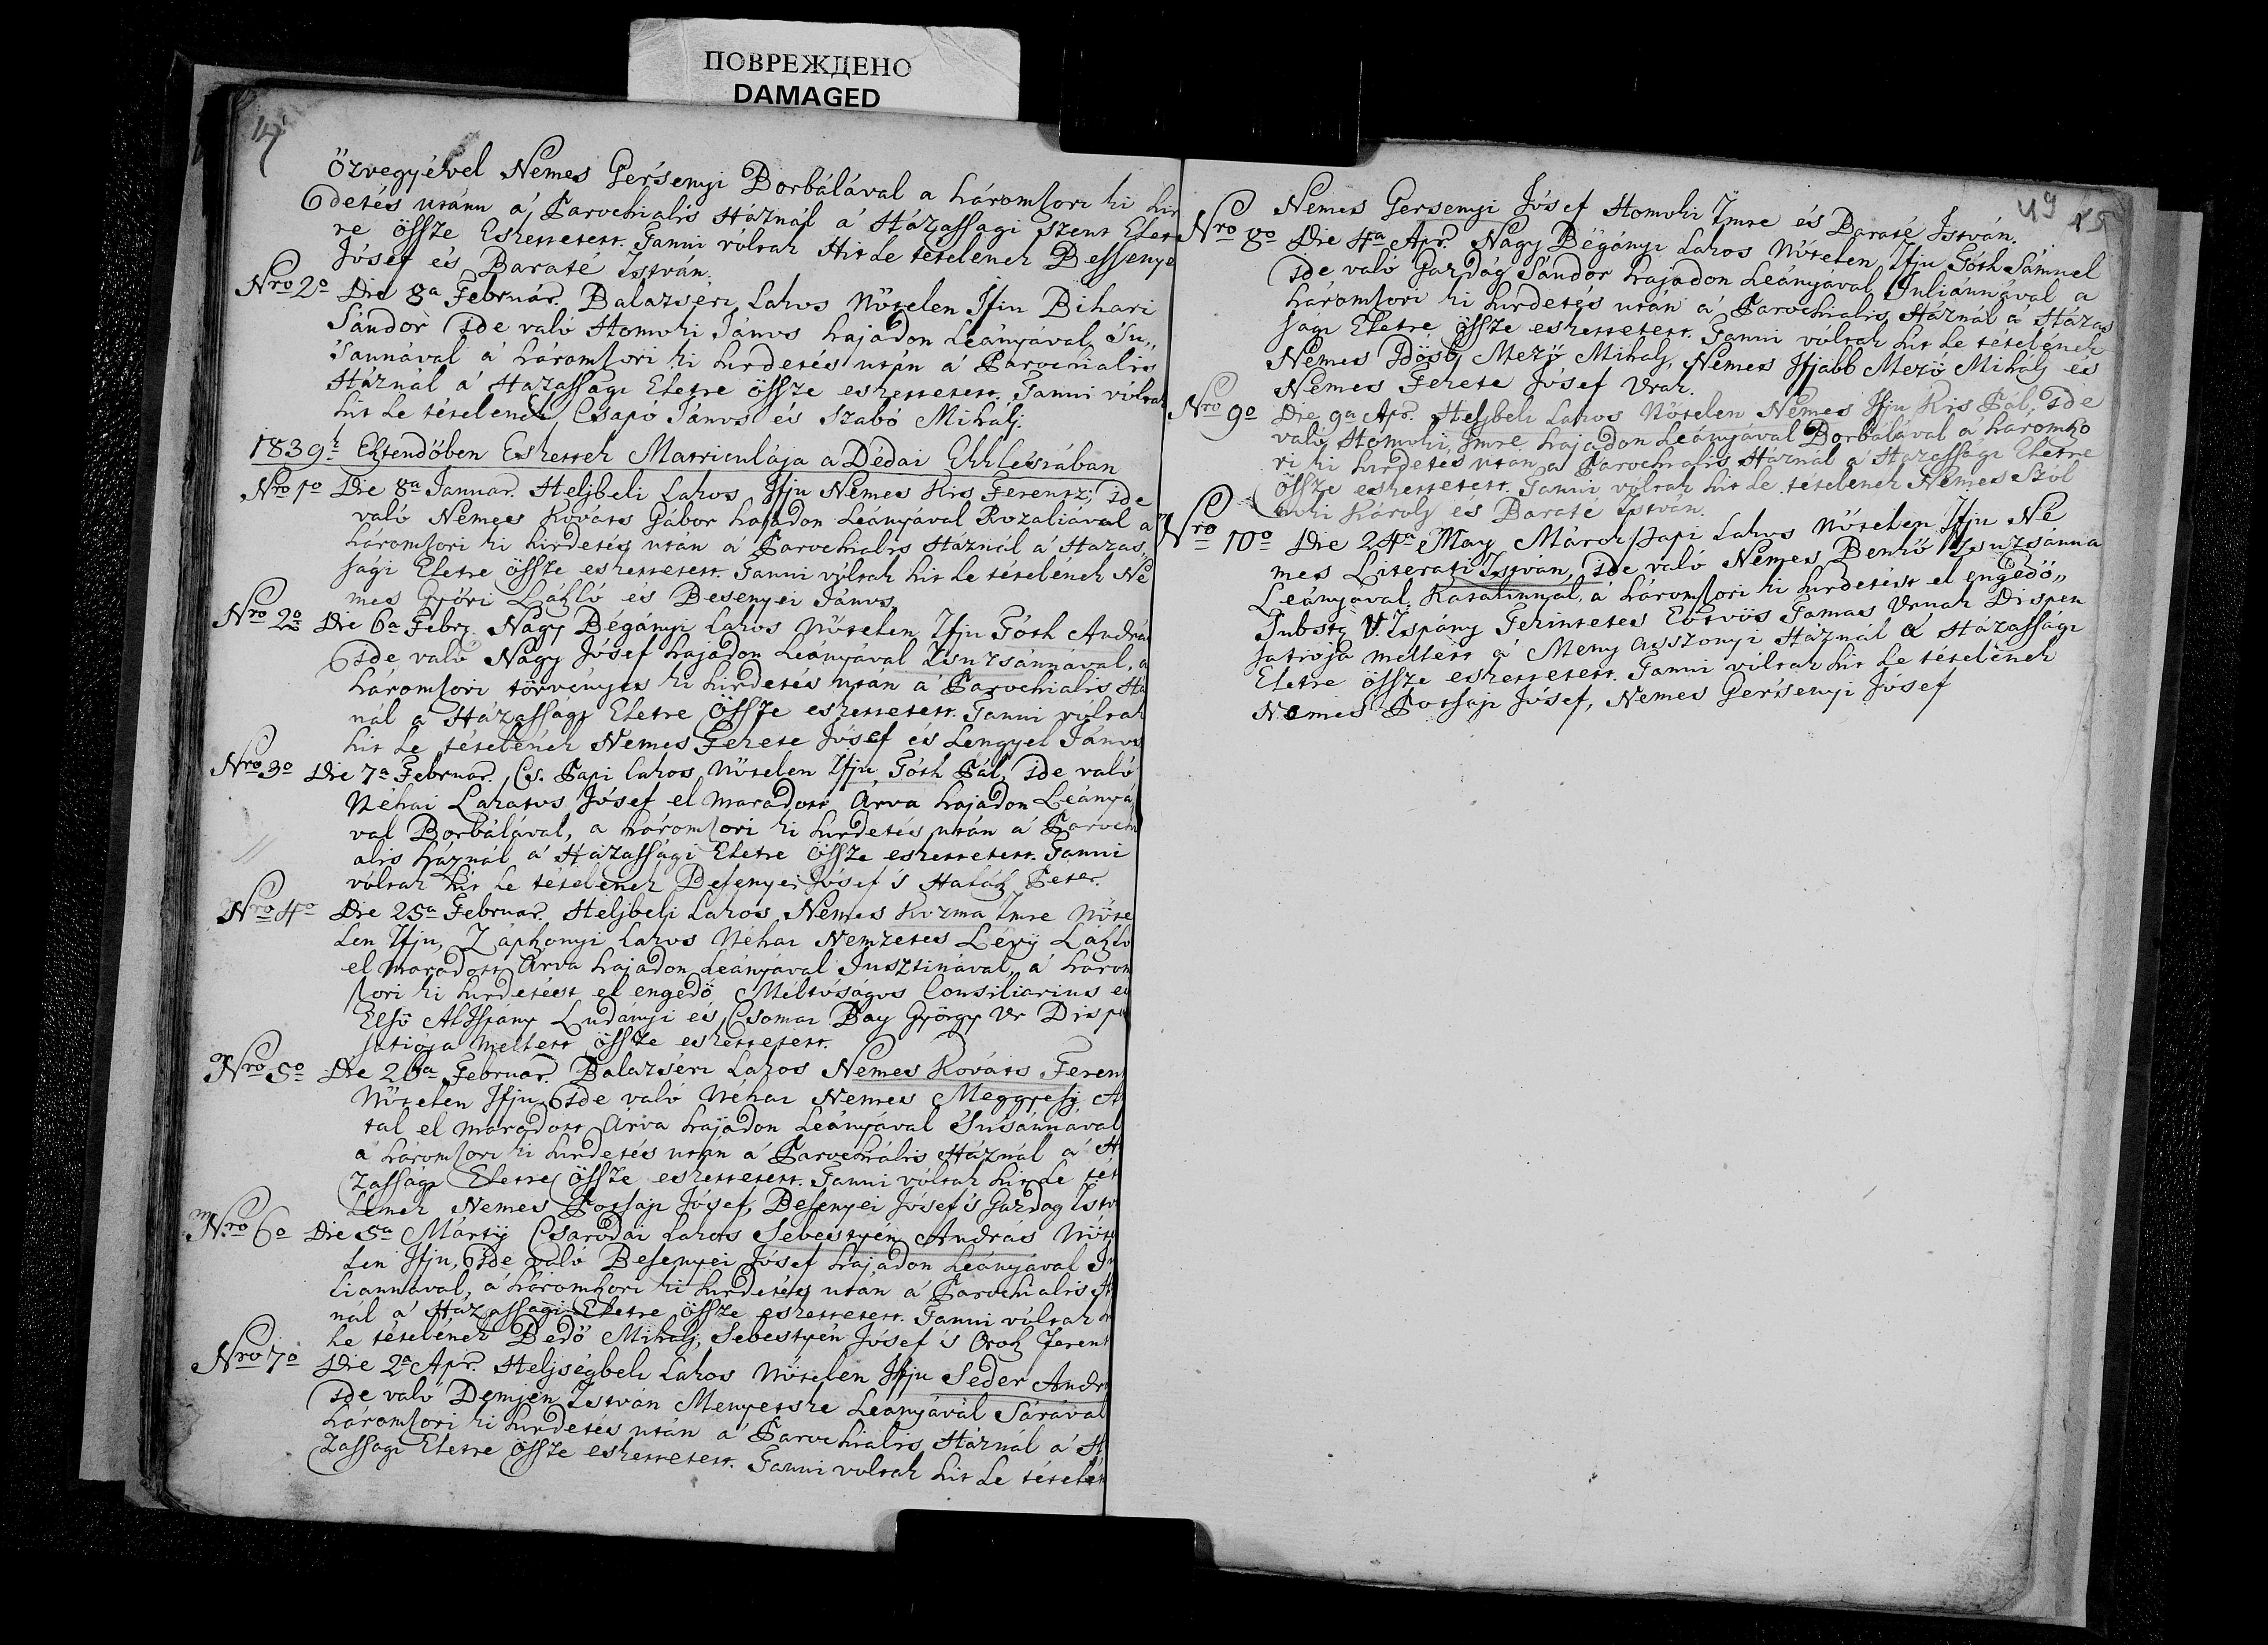 ПОВРЕЖДЕНО
DAMAGED
14
Özvegyével Nemes Gersenyi Borbálával a háromszori ki hir
detés utánn á Parochialis Háznál á Házassagi Szent Elet
re össze Eskettetett. Tanui vóltak Hit le tételének Bessenye
Jósef és Baraté István.
Nro 2o Die 8a Február. Balazséri Lakos Nőtelen Ifiu Bihari
Sándor ide való Homoki János hajadon Leányával Su„
sannával á háromszori ki hirdetés után á Parochialis
Háznál á Hazassági Eletre össze eskettetett. Tanui vóltak
hit le tételének Csapó János és Szabó Mihálj.
1839k Esztendőben Eskettek Matriculája a Dédai Ekklésiában
Nro 1o Die 8a Januar. Heljbeli Lakos Ifju Nemes Kis Ferentz, ide
való Nemes Kováts Gábor hajadon Leányával Rozaliával á
háromszori ki hirdetés után á Parochialis Háznál á Hazas„
sagi Eletre össze eskettetett. Tanui vóltak hit le tételének Ne
mes Győri László és Besenyei János
Nro 2o Die 6a Febr. Nagy Bégányi Lakos Nőtelen Ifju Tóth András
ide való Nagy Jósef hajadon Leányával Zsuzsánnával, a
háromszori törvényes ki hirdetés után á Parochialis Há
nál á Házassagi Eletre össze eskettetett. Tanui vóltak
hit le tételének Nemes Fekete Jósef és Lengyel János
Nro 3o Die 7a Februar. Cs. Papi lakos Nőtelen Ifju Tóth Pál, ide való
Néhai Lakatos Jósef el maradott Árva hajadon Leányá
val Borbálával, a háromszori ki hirdetés után á Paroch
alis háznál á Házassági Eletre össze eskettetett. Tanui
vóltak hit le tételének Besenyei Jósef 's Halász Péter.
Nro 4o Die 25a Februar. Heljbeli Lakos Nemes Kozma Imre Nőte
len Ifju, Zápszonyi Lakos Néhai Nemzetes Lévij László
el maradott Árva hajadon Leányával Jusztinával, á három
szori ki hirdetést el engedő Méltóságos Consiliarius es
Első AlIspány Ludányi és Csomai Bay György Ur Dispe
satioja mellett össze eskettetett.
Nro 5o Die 26a Februar. Balazséri Lakos Nemes Kováts Ferent
Nőtelen Ifju ide való Néhai Nemes Meggyesi A
tal el maradott Árva hajadon Leányával Susánnával
á háromszori ki hirdetés után á Parochiális Háznál á H
zassági Eletre össze eskettetett. Tanui vóltak hit le tét
lének Nemes Potsaji Jósef, Besenyei Jósef 's Gazdag Istv
Nro 6o Die 5a Mártij Csarodai Lakos Sebestyén András Nőte
len Ifju, ide való Besenyei Jósef hajadon Leányával Ju
liannával, á háromszori ki hirdetés után á Parochialis H
nál á Házassági Eletre össze eskettetett. Tanui vóltak h
le tételének Bedő Mihalj, Sebestyén Jósef 's Orosz Ferent
Nro 7o Die 2a Apr. Heljségbeli Lakos Nőtelen Ifju Seder Andr
ide való Demjén István Menyetske Leányávál Sárával
háromszori ki hirdetés után á Parochialis Háznál á H
zassagi Eletre össze eskettetett. Tanui voltak hit le tételén
49 15
Nemes Gersenyi Jósef Homoki Imre és Baraté István.
Nro 8o Die 4a Apr. Nagy Bégányi Lakos Nőtelen Ifju Tóth Sámuel
ide való Gazdag Sándor hajadon Leányával Juliánnával a
háromszori ki hirdetés után á Parochialis Háznál á Házas
sági Eletre össze eskettetett. Tanui vóltak hit le tételének
Nemes Idősb Mező Mihalj, Nemes Ifjabb Mező Mihálj és
Nemes Fekete Jósef Urak.
Nro 9o Die 9a Apr. Heljbeli Lakos Nőtelen Nemes Ifju Kis Pál, ide
való Homoki Imre hajadon Leányával Borbálával á háromszo
ri ki hirdetés után a Parochialis Háznál á Hazassági Eletre
össze eskettetett. Tanui vóltak hit le tételének Nemes Szól
noki Károly és Baraté István.
Nro 10o Die 24a May Márok Papi Lakos Nőtelen Ifju Ne
mes Literati Istvan, ide való Nemes Benkő Zsuzsánna
Leányával Katalinnal, á háromszori ki hirdetést el engedő„
Substz V. Ispány Tekintetes Eötvös Tamas Urnak Dispen
satioja mellett á Meny asszonyi Háznál á Házassági
Eletre össze eskettetett. Tanui vóltak hit le tételének
Nemes Potsaji Jósef, Nemes Gersenyi Jósef